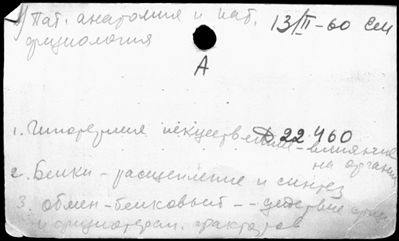 Пат. анатомия и пат. 13/II-60 Сем
физиология
А
1. Гипотермия искусственная - влияние
Д 22460
на организм
2. Белки - расщепление и синтез
3. обмен - белковый -- действие физ.
и физиотерап. факторов